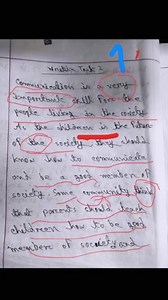 Written Task 1
Communication is a very
importante skill for the
people living in the society
As the children is the future
of the society they should
know how to communicate
and be a good member of
society. Some community think
that parents should teach
children how to be good
member of society and